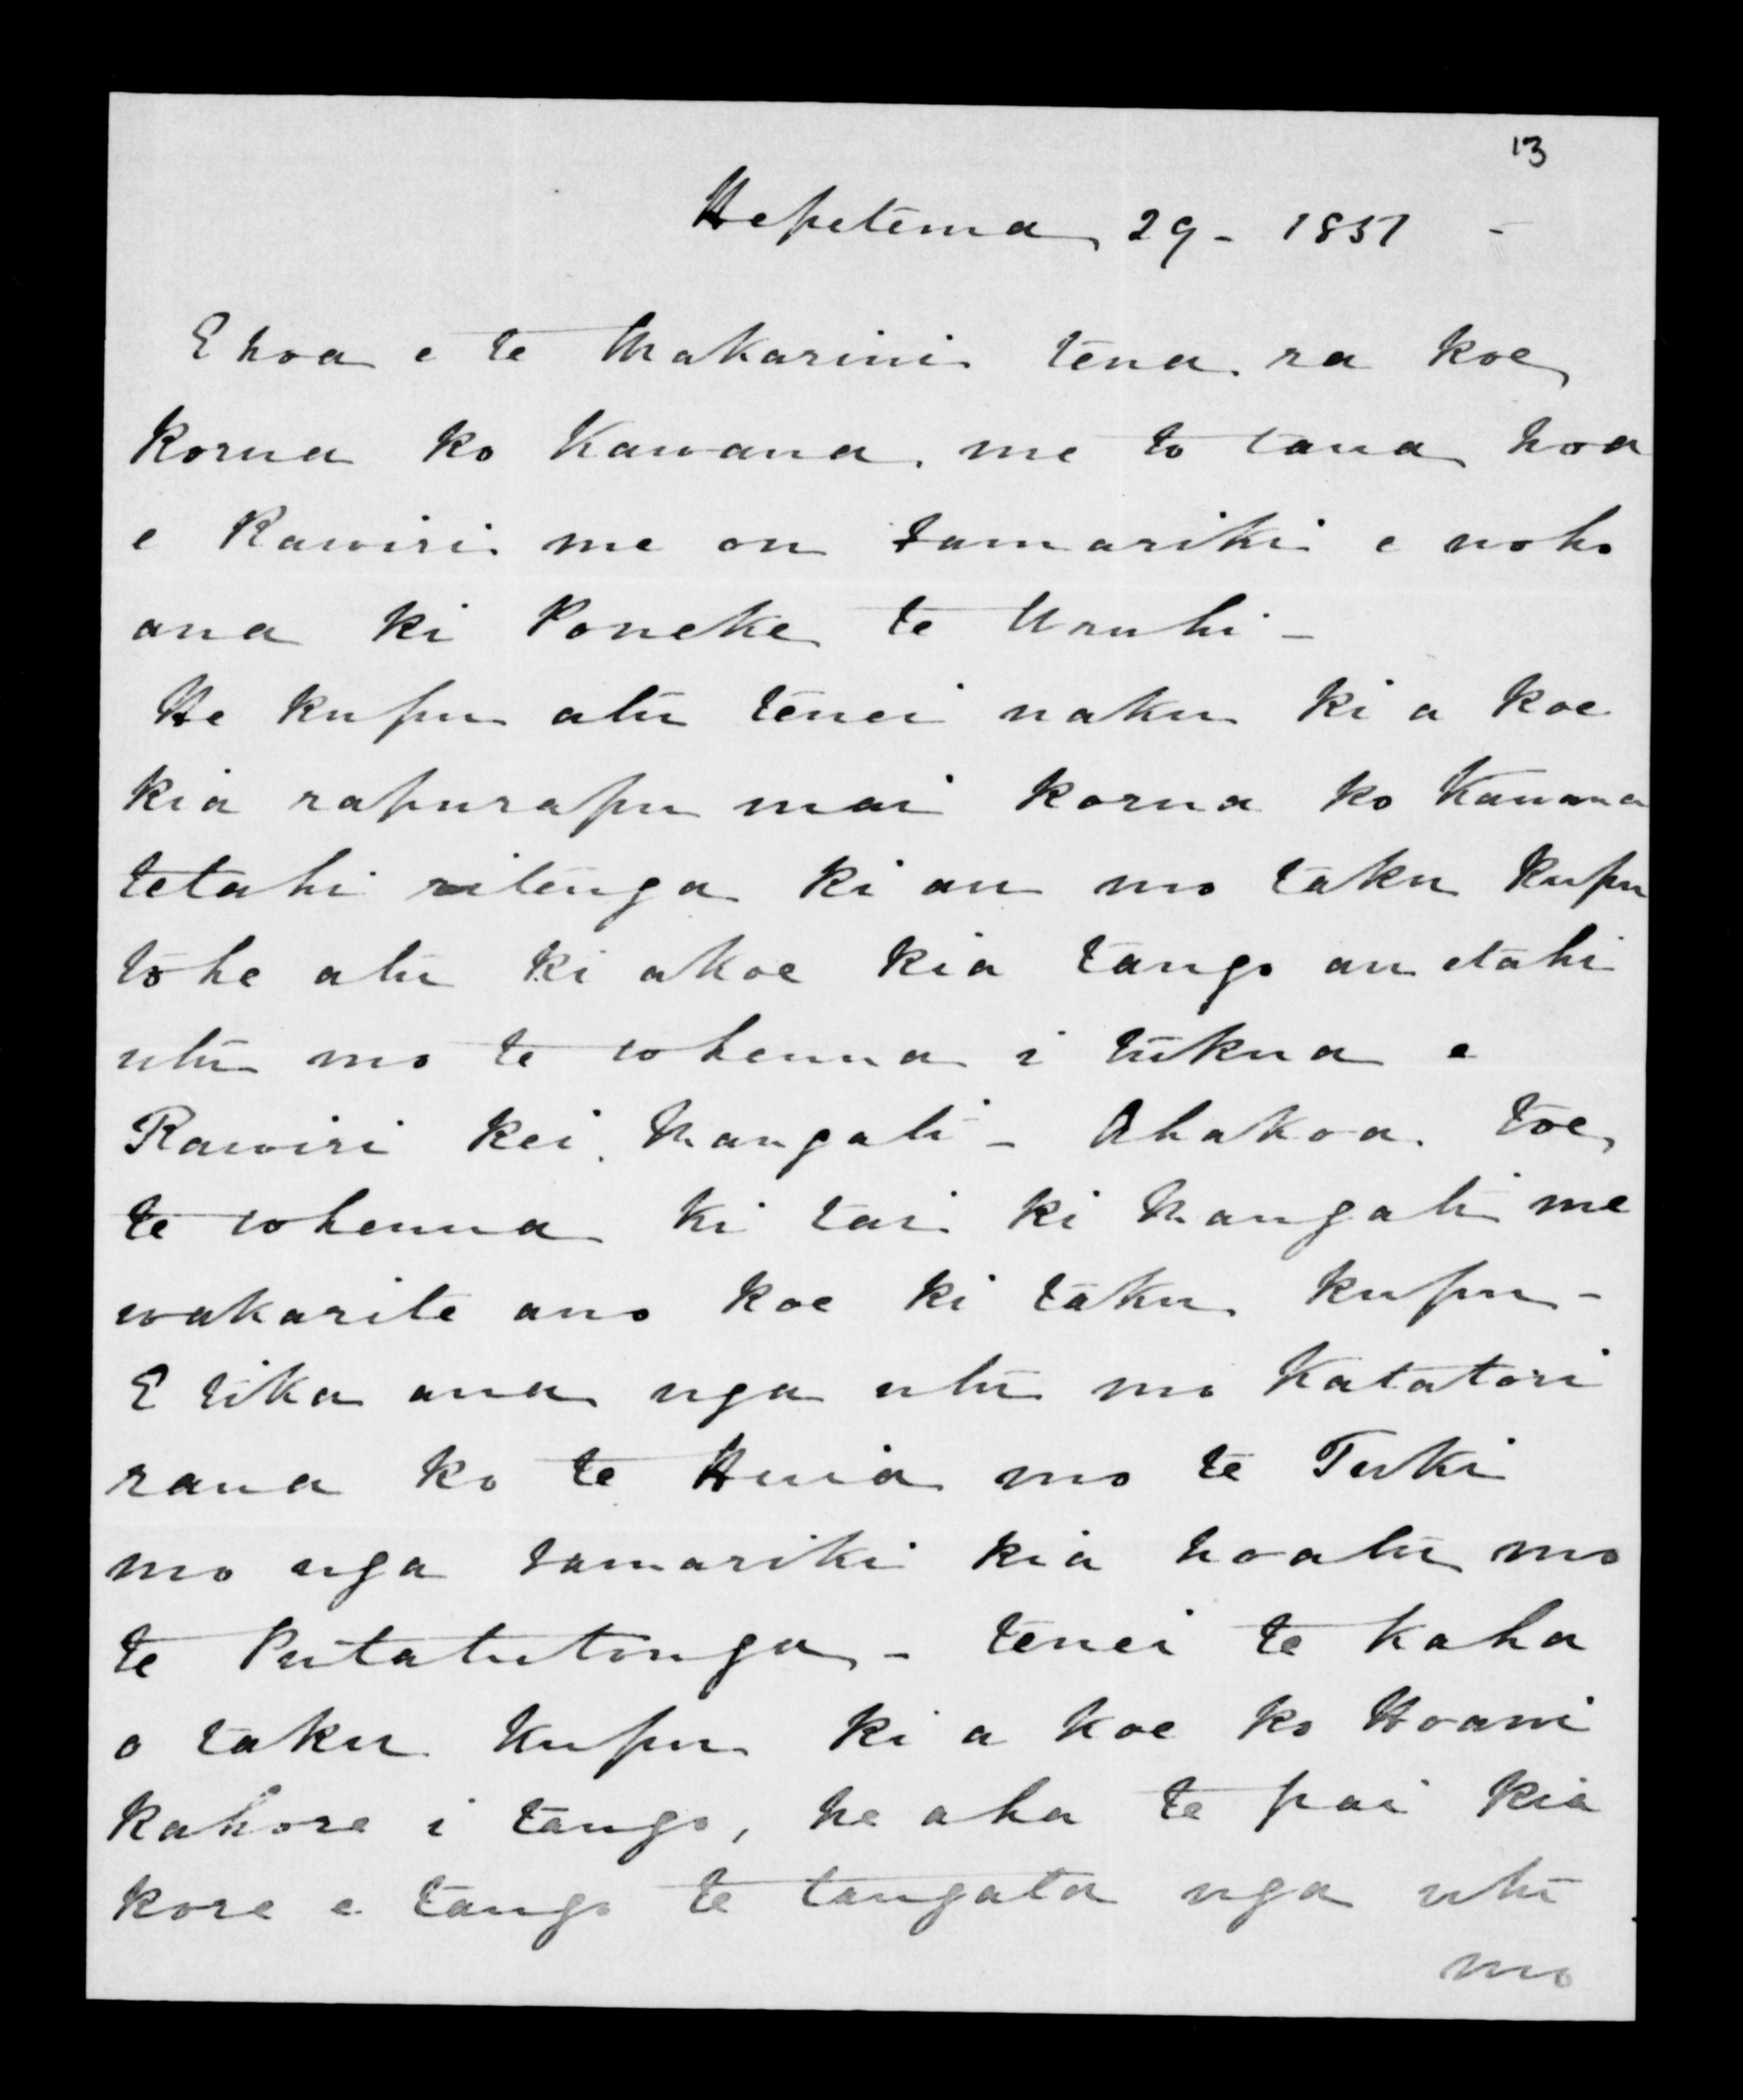 13
Hepetema 29 - 1857 -
E hoa e te Makarini tena ra koe
korua ko Kawana. me to taua hoa
e Rawiri me ou tamariki e noho
ana ki Poneke te Uruhi -
He kupu atu tenei naku ki a koe
kia rapurapu mai korua ko Kawana
tetahi ritenga ki au mo taku kupu
tohe atu ki akoe kia tango au etahi
utu mo te whenua i tukua e
Rawiri kei Mangati - Ahakoa toe
te whenua ki tai ki Mangati me
wakarite ano koe ki taku kupu -
E tika ana nga utu mo Katatori
raua ko te Huia mo te Tuki
mo nga tamariki kia hoatu mo
te Putatutonga - tenei te kaha
o taku kupu ki a koe ko Hoani
kahore i tango, he aha te pai kia
kore e tango te tangata nga utu
mo